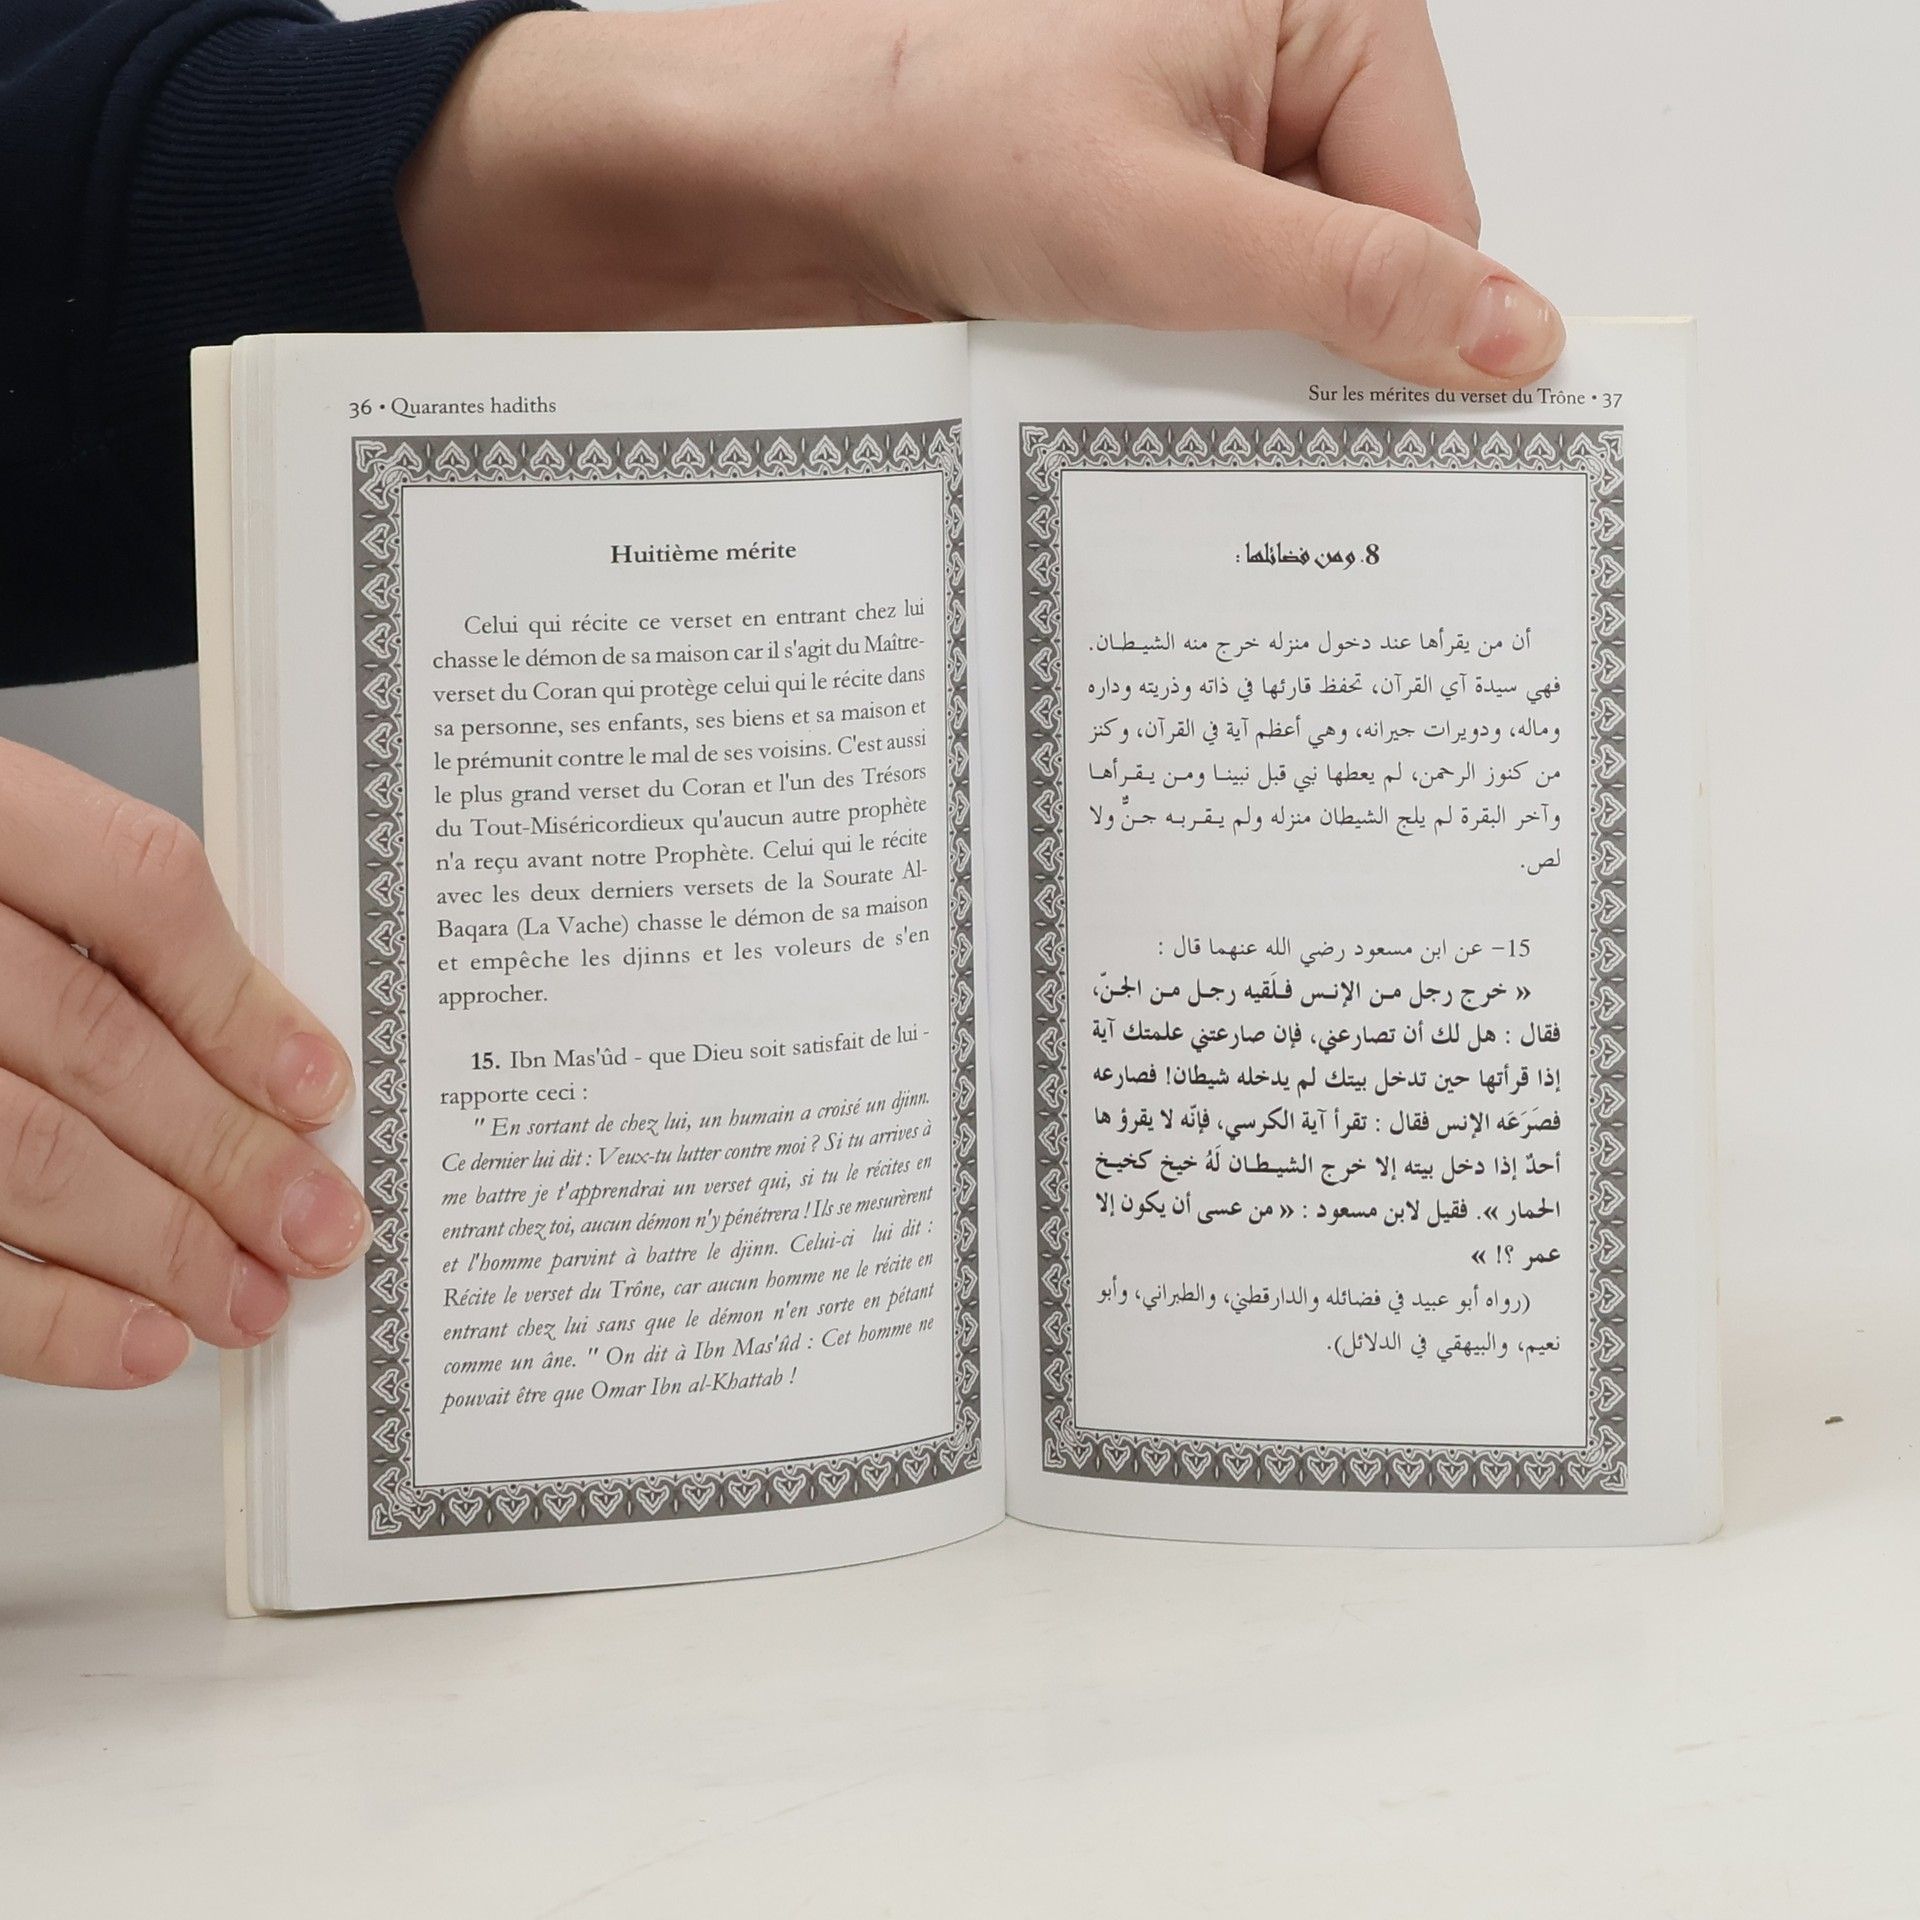 36 • Quarantes hadiths
Huitième mérite
Celui qui récite ce verset en entrant chez lui
chasse le démon de sa maison car il s'agit du Maître-
verset du Coran qui protège celui qui le récite dans
sa personne, ses enfants, ses biens et sa maison et
le prémunit contre le mal de ses voisins. C'est aussi
le plus grand verset du Coran et l'un des Trésors
du Tout-Miséricordieux qu'aucun autre prophète
n'a reçu avant notre Prophète. Celui qui le récite
avec les deux derniers versets de la Sourate Al-
Baqara (La Vache) chasse le démon de sa maison
et empêche les djinns et les voleurs de s'en
approcher.
15. Ibn Mas'ûd - que Dieu soit satisfait de lui -
rapporte ceci :
" En sortant de chez lui, un humain a croisé un djinn.
Ce dernier lui dit : Veux-tu lutter contre moi ? Si tu arrives à
me battre je t'apprendrai un verset qui, si tu le récites en
entrant chez toi, aucun démon n'y pénétrera ! Ils se mesurèrent
et l'homme parvint à battre le djinn. Celui-ci lui dit :
Récite le verset du Trône, car aucun homme ne le récite en
entrant chez lui sans que le démon n'en sorte en pétant
comme un âne. " On dit à Ibn Mas'ûd : Cet homme ne
pouvait être que Omar Ibn al-Khattab !
Sur les mérites du verset du Trône • 37
8. ومن فضائلها :
أن من يقرأها عند دخول منزله خرج منه الشيطان.
فهي سيدة آي القرآن، تحفظ قارئها في ذاته وذريته وداره
وماله، ودويرات جيرانه، وهي أعظم آية في القرآن، وكنز
من كنوز الرحمن، لم يعطها نبي قبل نبينا ومن يقرأها
وآخر البقرة لم يلج الشيطان منزله ولم يقربه جنٌّ ولا
لص.
15- عن ابن مسعود رضي الله عنهما قال :
« خرج رجل من الإنس فلَقيه رجل من الجنّ،
فقال : هل لك أن تصارعني، فإن صارعتني علمتك آية
إذا قرأتها حين تدخل بيتك لم يدخله شيطان! فصارعه
فصَرَعَه الإنس فقال : تقرأ آية الكرسي، فإنّه لا يقرؤ ها
أحدٌ إذا دخل بيته إلا خرج الشيطان لَهُ خيخ كخيخ
الحمار ». فقيل لابن مسعود : « من عسى أن يكون إلا
عمر ؟! »
(رواه أبو عبيد في فضائله والدارقطني، والطبراني، وأبو
نعيم، والبيهقي في الدلائل).